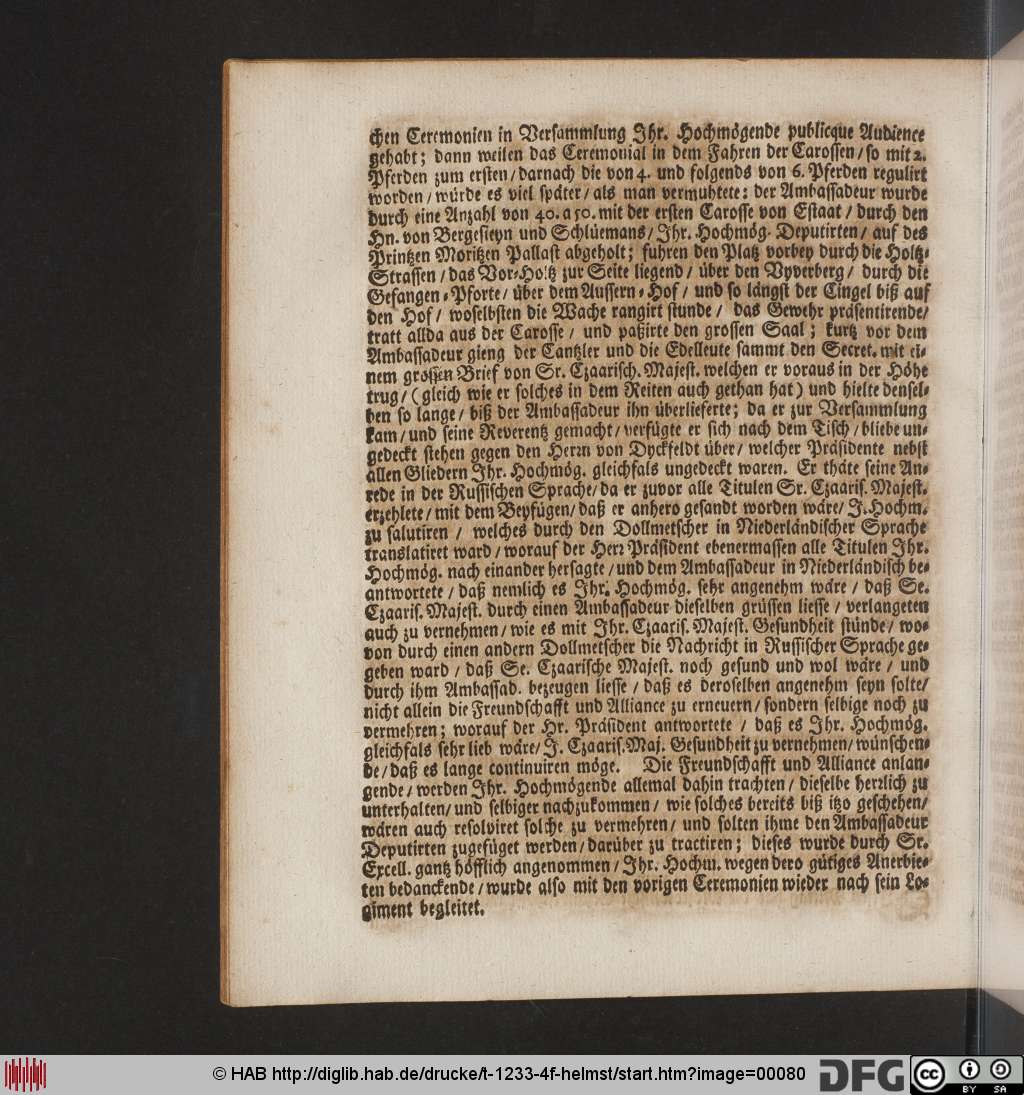 chen Ceremonien in Versammlung Ihr. Hochmögende publicque Audience
gehabt; dann weilen das Ceremonial in dem Fahren der Carossen/ so mit 2.
Pferden zum ersten/ darnach die von 4. und folgends von 6. Pferden regulirt
worden/ würde es viel später/ als man vermuhtete: der Ambassadeur wurde
durch eine Anzahl von 40. a 50. mit der ersten Carosse von Estaat/ durch den
Hn. von Bergesteyn und Schlüemans/ Ihr. Hochmög. Deputirten/ auf des
Printzen Moritzen Pallast abgeholt; fuhren den Platz vorbey durch die Holtz-
Strassen/ das Vor-Holtz zur Seite liegend/ über den Vyverberg/ durch die
Gefangen-Pforte/ über dem Aussern-Hof/ und so längst der Cingel biß auf
den Hof/ woselbsten die Wache rangirt stunde/ das Gewehr präsentirende/
tratt allda aus der Carosse/ und paßirte den grossen Saal; kurtz vor dem
Ambassadeur gieng der Cantzler und die Edelleute sammt den Secret. mit ei-
nem grossen Brief von Sr. Czaarisch. Majest. welchen er voraus in der Höhe
trug/ (gleich wie er solches in dem Reiten auch gethan hat) und hielte densel-
ben so lange/ biß der Ambassadeur ihn überlieferte; da er zur Versammlung
kam/ und seine Reverentz gemacht/ verfügte er sich nach dem Tisch/ bliebe un-
gedeckt stehen gegen den Herrn von Dyckfeldt über/ welcher Präsidente nebst
allen Gliedern Ihr. Hochmög. gleichfals ungedeckt waren. Er thäte seine An-
rede in der Russischen Sprache/ da er zuvor alle Titulen Sr. Czaaris. Majest.
erzehlete/ mit dem Beyfügen/ daß er anhero gesandt worden wäre/ I. Hochm.
zu salutiren/ welches durch den Dollmetscher in Niederländischer Sprache
translatiret ward/ worauf der Herr Präsident ebenermassen alle Titulen Ihr.
Hochmög. nach einander hersagte/ und dem Ambassadeur in Niederländisch be-
antwortete/ daß nemlich es Ihr. Hochmög. sehr angenehm wäre/ daß Se.
Czaaris. Majest. durch einen Ambassadeur dieselben grüssen liesse/ verlangeten
auch zu vernehmen/ wie es mit Ihr. Czaaris. Majest. Gesundheit stünde/ wo-
von durch einen andern Dollmetscher die Nachricht in Russischer Sprache ge-
geben ward/ daß Se. Czaarische Majest. noch gesund und wol wäre/ und
durch ihm Ambassad. bezeugen liesse/ daß es deroselben angenehm seyn solte/
nicht allein die Freundschafft und Alliance zu erneuern/ sondern selbige noch zu
vermehren; worauf der Hr. Präsident antwortete/ daß es Ihr. Hochmög.
gleichfals sehr lieb wäre/ I. Czaaris. Maj. Gesundheit zu vernehmen/ wünschen-
de/ daß es lange continuiren möge. Die Freundschafft und Alliance anlan-
gende/ werden Ihr. Hochmögende allemal dahin trachten/ dieselbe herrlich zu
unterhalten/ und selbiger nachzukommen/ wie solches bereits biß itzo geschehen/
wären auch resolviret solche zu vermehren/ und solten ihme den Ambassadeur
Deputirten zugefüget werden/ darüber zu tractiren; dieses wurde durch Sr.
Excell. gantz höfflich angenommen/ Ihr. Hochm. wegen dero gütiges Anerbie-
ten bedanckende/ wurde also mit den vorigen Ceremonien wieder nach sein Lo-
giment begleitet.
© HAB http://diglib.hab.de/drucke/t-1233-4f-helmst/start.htm?image=00080
DFG
cc BY SA